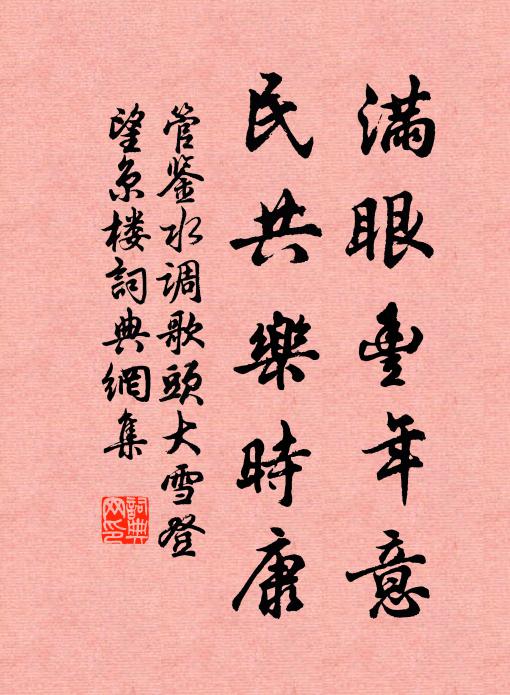 滿眼豊年意
民共樂時康
管鉴水调歌頭大雪登
望京楼詞典網集
詞典
网印